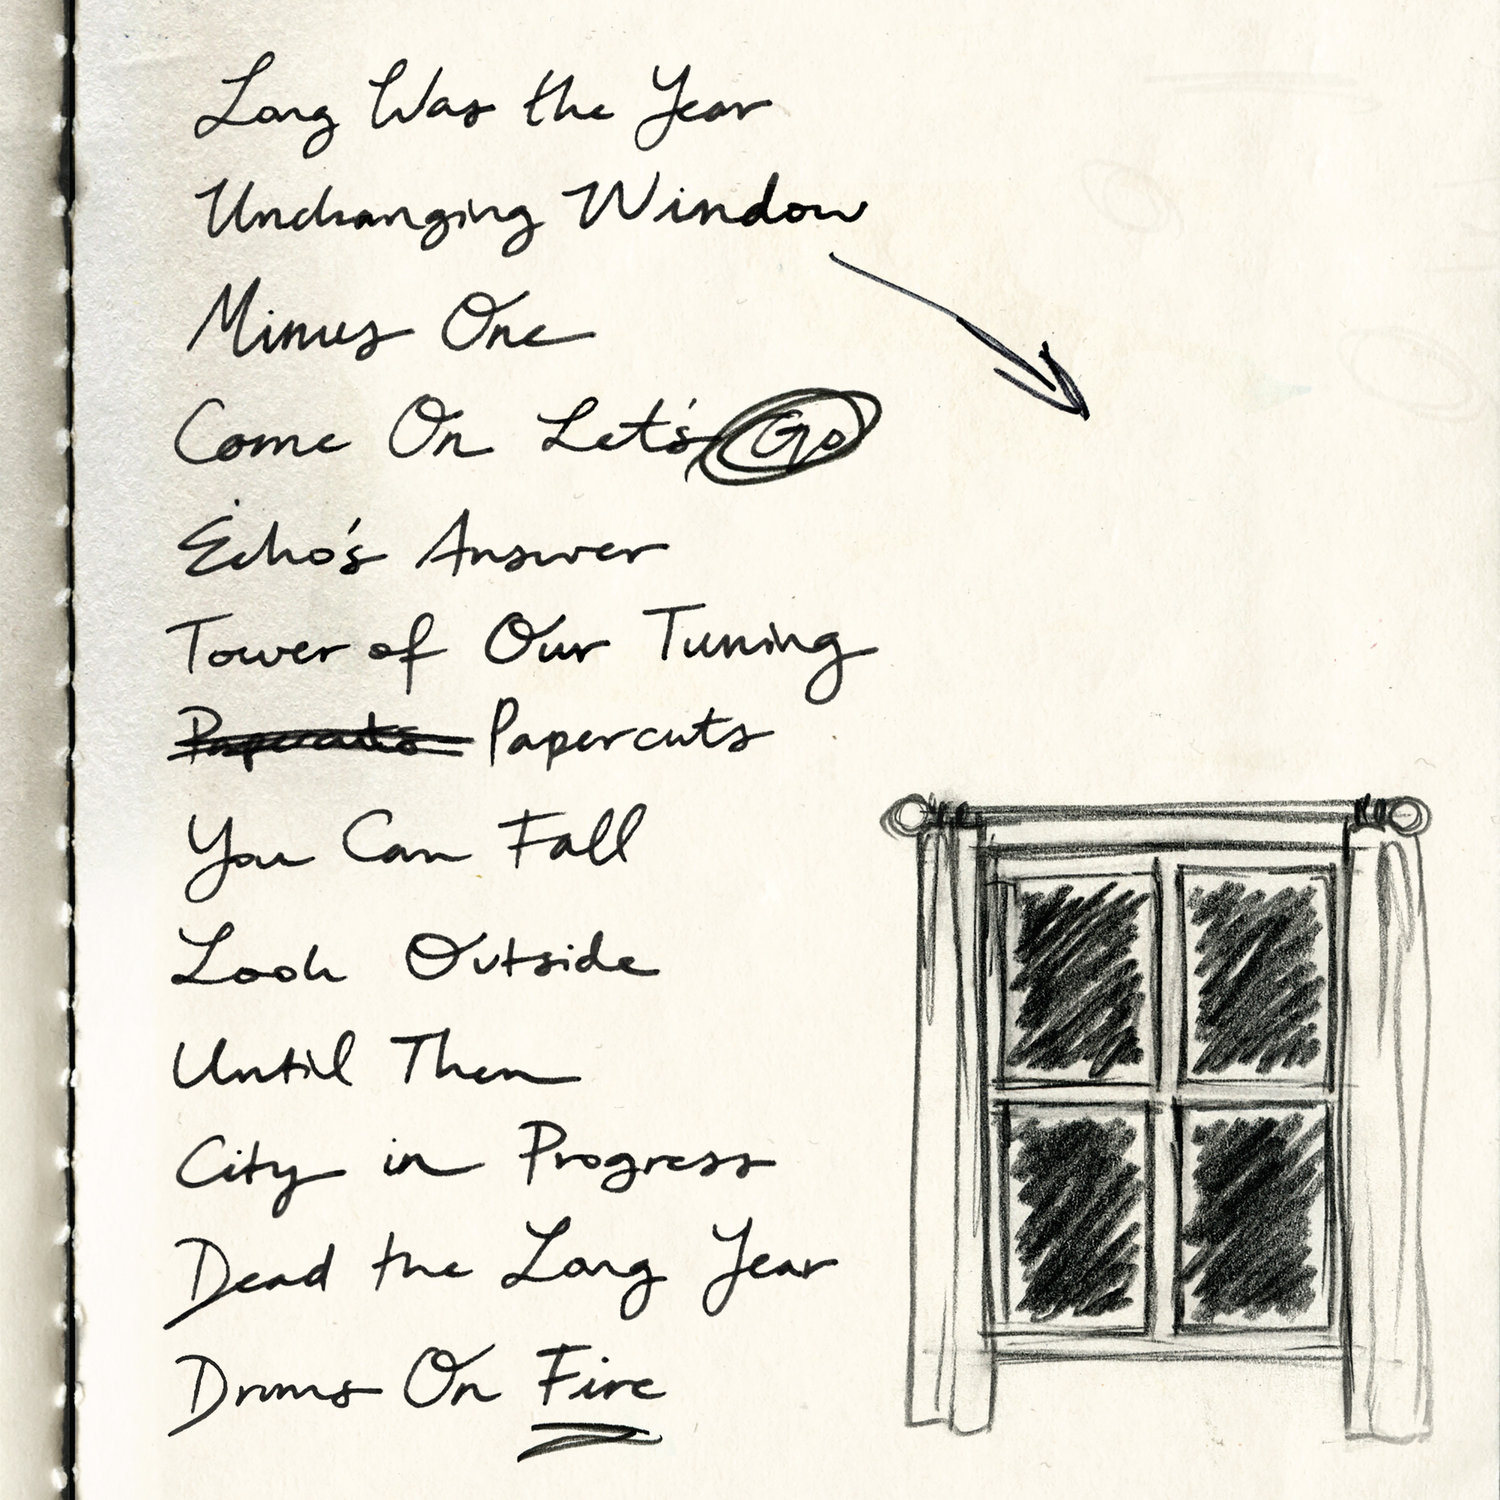 Long Was the Year
Unchanging Window
Minus One
Come On Let's Go
Echo's Answer
Tower of Our Tuning
Papercuts Papercuts
You Can Fall
Look Outside
Until Then
City in Progress
Dead the Long Year
Drums On Fire